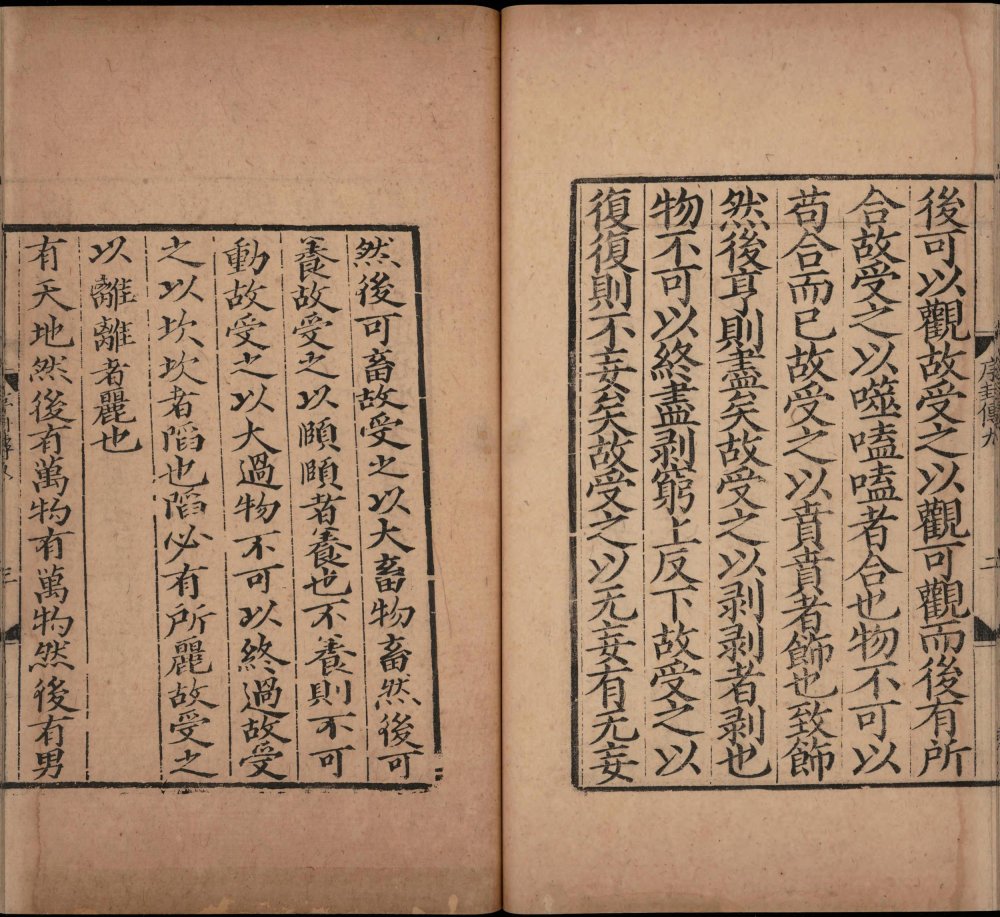 後可以觀故受之以觀可觀而後有所
合故受之以噬嗑嗑者合也物不可以
苟合而已故受之以賁賁者飾也致飾
然後亨則盡矣故受之以剥剥者剥也
物不可以終盡剥窮上反下故受之以
復復則不妄矣故受之以无妄有无妄
然後可畜故受之以大畜物畜然後可
養故受之以頤頤者養也不養則不可
動故受之以大過物不可以終過故受
之以坎坎者陷也陷必有所麗故受之
以離離者麗也
有天地然後有萬物有萬物然後有男
序卦傳九
二
三